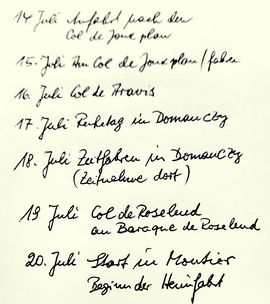 14 Juli Anfahrt nach den
Col de Joux plan
15. Juli Am Col de Joux plan/
16. Juli Col de Aravis
17. Juli Ruhetag in Domanczy
18. Juli Zeitfahren in Domanczy
(Zeitnahme dort)
19 Juli Col de Roselend
au Baraque de Roselend
20. Juli Start in Moutier
Beginn der Heimfahrt